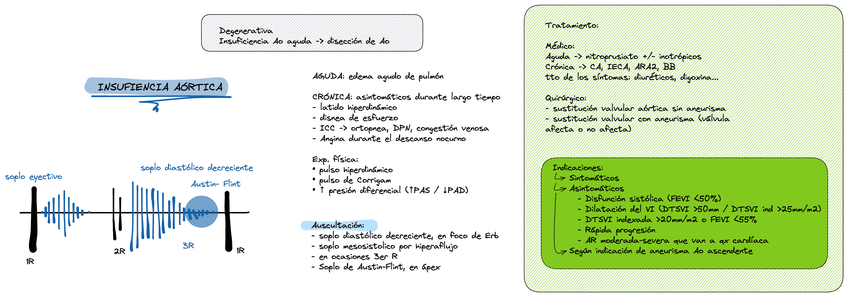 Degenerativa
Insuficiencia Ao aguda -> disección de Ao
INSUFIENCIA AÓRTICA
soplo eyectivo
soplo diastólico decreciente
Austin- Flint
1R
2R
3R
1R
AGUDA: edema agudo de pulmón
CRÓNICA: asintomáticos durante largo tiempo
- latido hiperdinámico
- disnea de esfuerzo
- ICC -> ortopnea, DPN, congestión venosa
- Angina durante el descanso nocurno
Exp. física:
• pulso hiperdinámico
• pulso de Corrigan
• ↑ presión diferencial (↑PAS / ↓PAD)
Auscultación:
- soplo diastólico decreciente, en foco de Erb
- soplo mesosistolico por hiperaflujo
- en ocasiones 3er R
- Soplo de Austin-Flint, en ápex
Tratamiento:
Médico:
Aguda -> nitroprusiato +/- inotrópicos
Crónica -> CA, IECA, ARA2, BB
tto de los síntomas: diuréticos, digoxina...
Quirúrgico:
- sustitución valvular aórtica sin aneurisma
- sustitución valvular con aneurisma (válvula
afecta o no afecta)
Indicaciones:
Sintomáticos
Asintomáticos
- Disfunción sistólica (FEVI <50%)
- Dilatación del VI (DTSVI >50mm / DTSVI ind >25mm/m2)
- DTSVI indexada >20mm/m2 o FEVI <55%
- Rápida progresión
- AR moderada-severa que van a qx cardíaca
Según indicación de aneurisma Ao ascendente